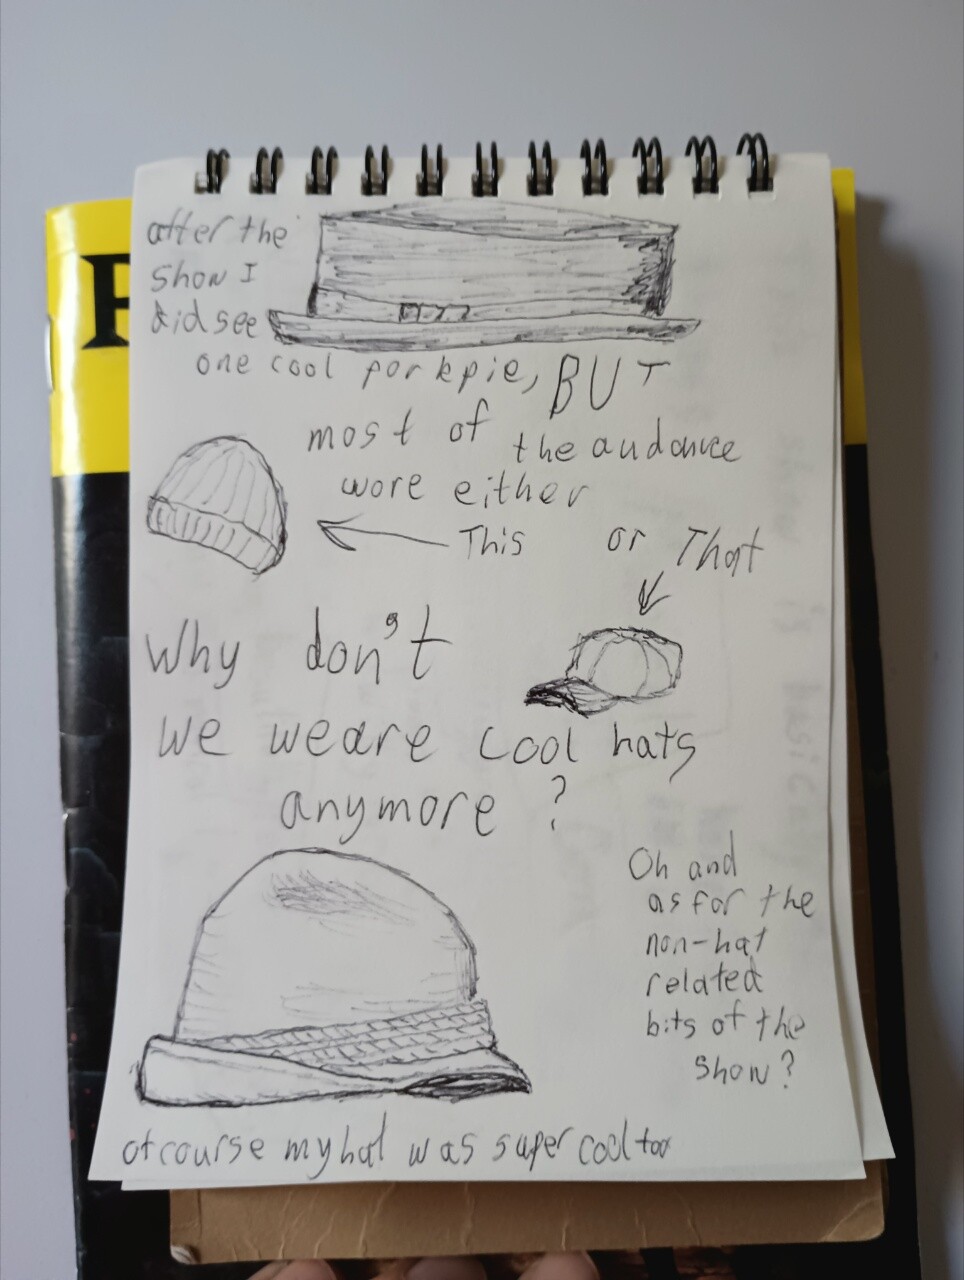 after the
show I
did see
one cool porkpie, BUT
most of the audance
wore either
This or That
Why don't
we weare cool hats
anymore?
Oh and
as for the
non-hat
related
bits of the
show?
of course my hat was super cool too